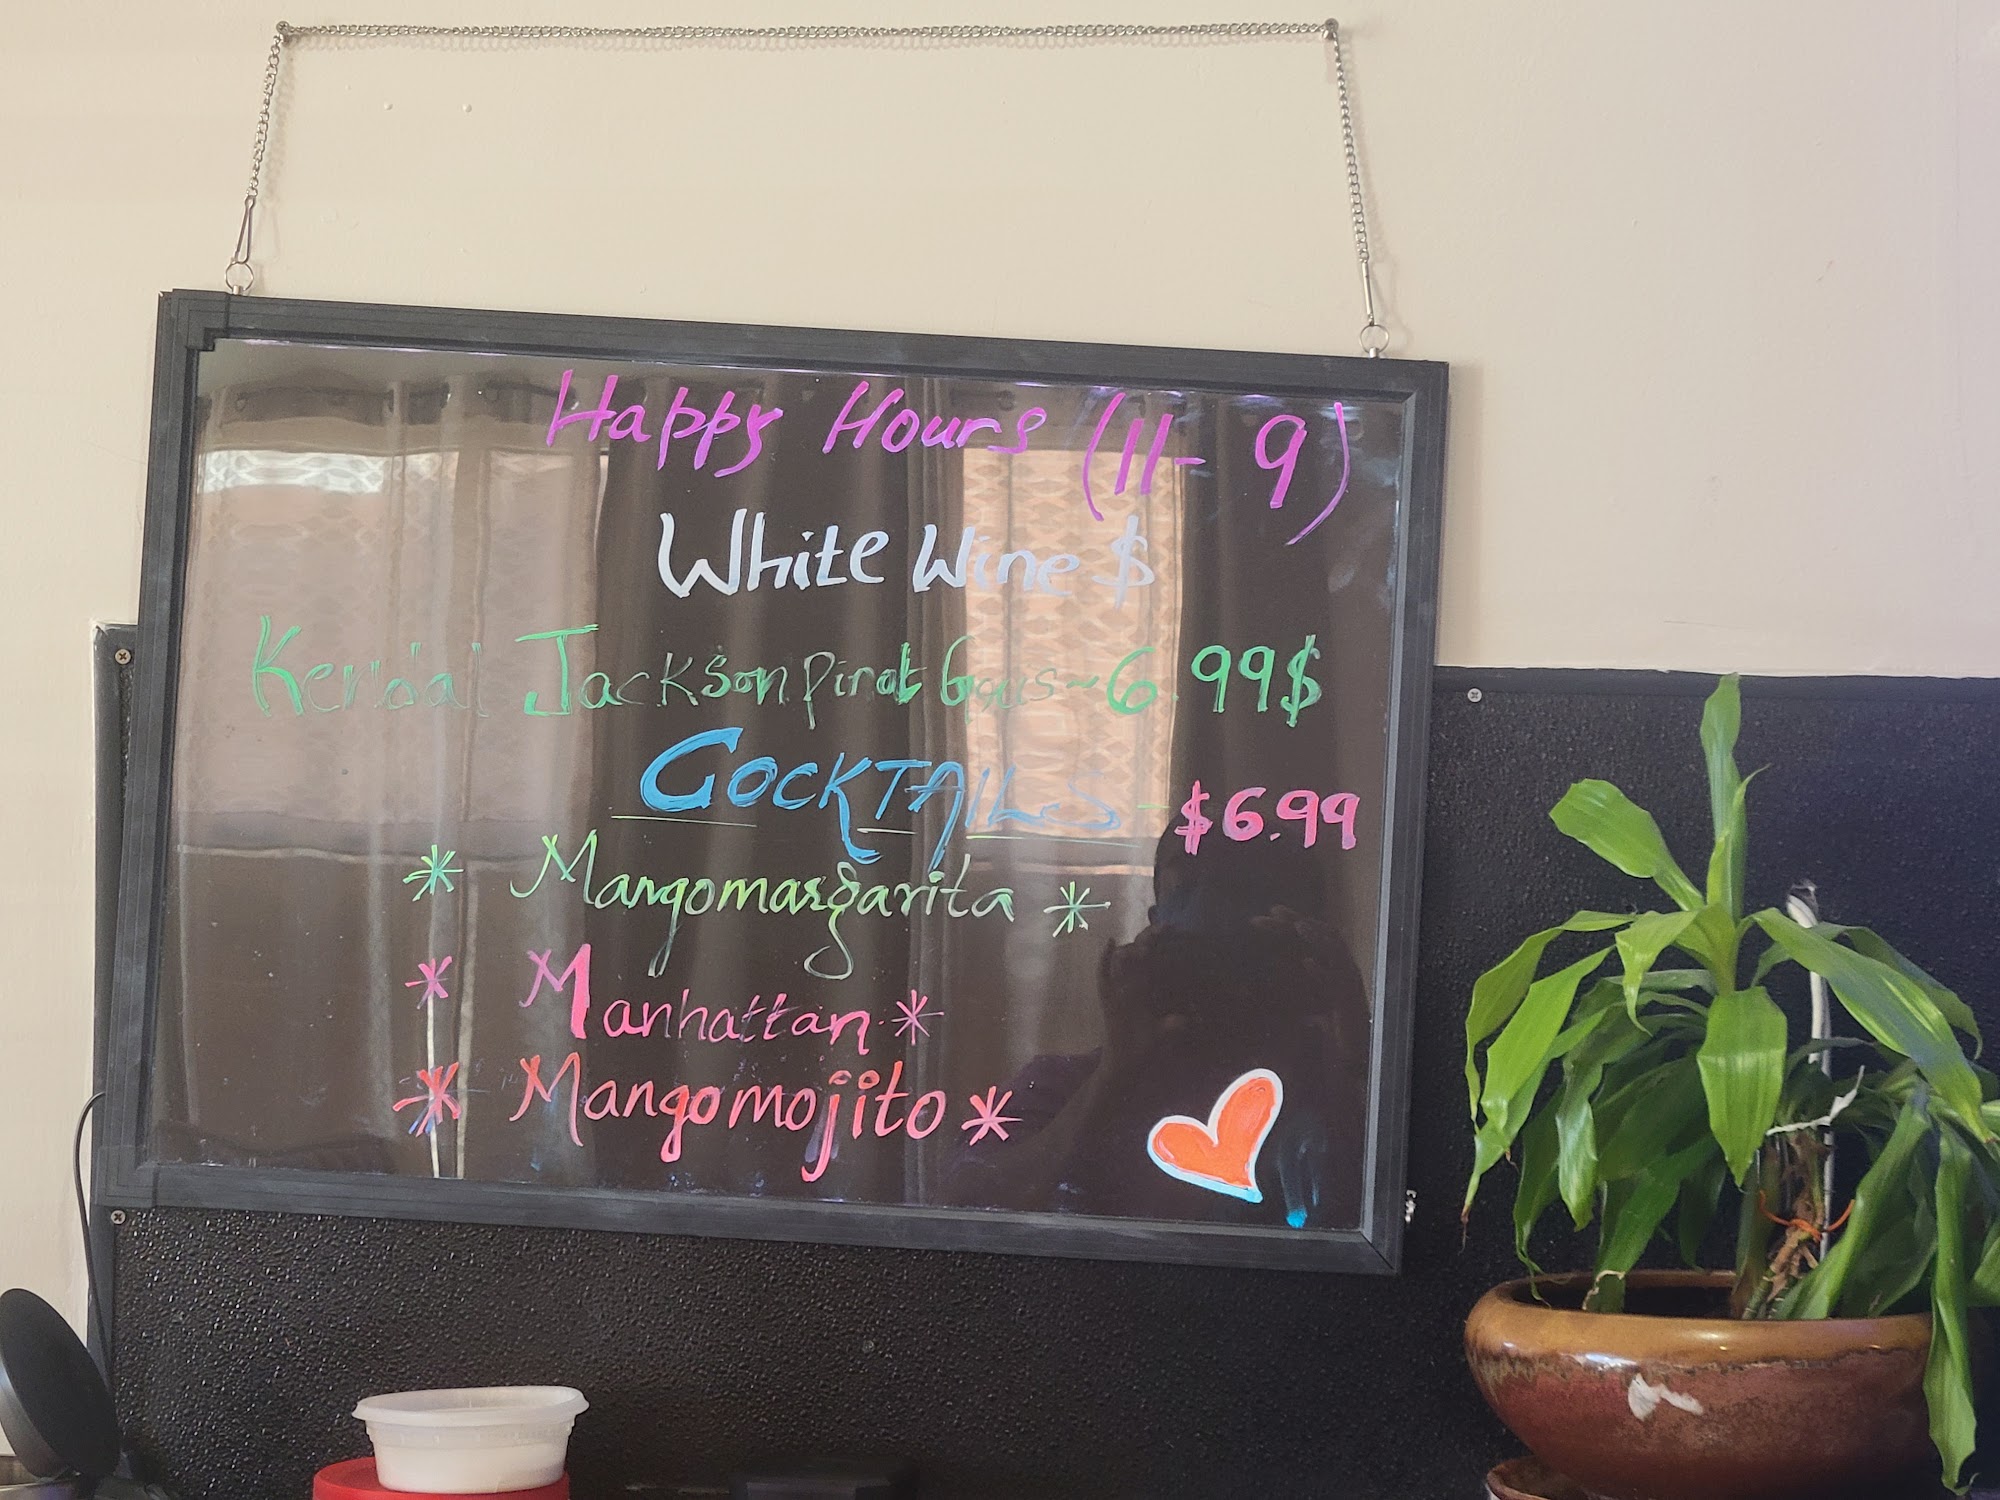 Happy Hours (11- 9)
White Wine $
Kendal Jackson pinot Gris ~ 6.99$
COCKTAILS - $6.99
* Mangomargarita *
* Manhattan *
* Mangomojito *